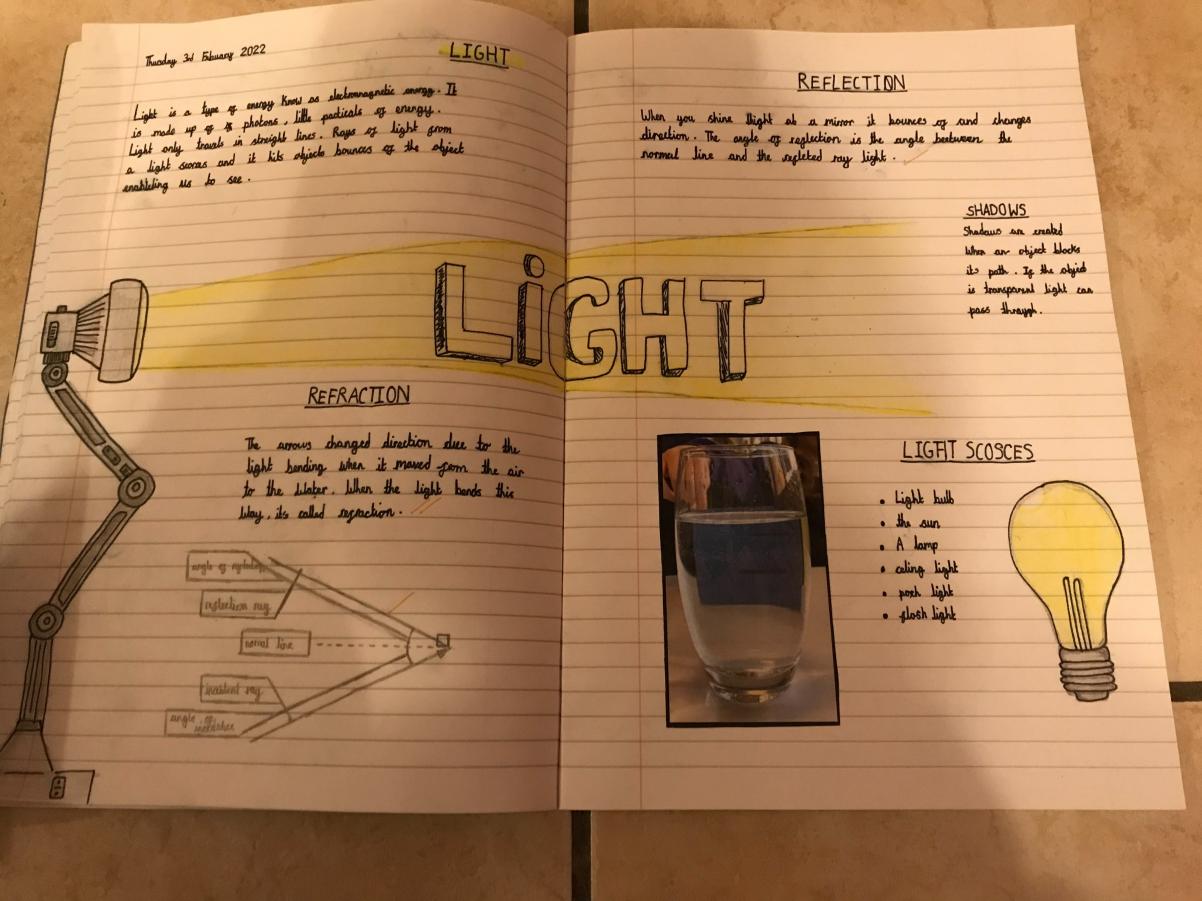 Thursday 3rd Febuary 2022
LIGHT
Light is a type of energy know as electromagnetic energy. It
is made up of photons, little particals of energy.
Light only travels in streight lines. Rays of light from
a light scorces and it hits objects bounces of the object
enableling us to see.
LiGHT
REFRACTION
The arrows changed direction due to the
light bending when it moved from the air
to the water. When the light bends this
way, its called refraction.
angle of
reflection ray
normal line
incident ray
angle of
REFLECTION
When you shine light at a mirror it bounces of and changes
direction. The angle of reflection is the angle beetween the
normal line and the refleted ray light.
SHADOWS
Shadows are created
when an object blocks
its path. If the object
is transparent light can
pass through.
LIGHT SCOSCES
• Light bulb
• the sun
• A lamp
• celing light
• porh light
• flash light